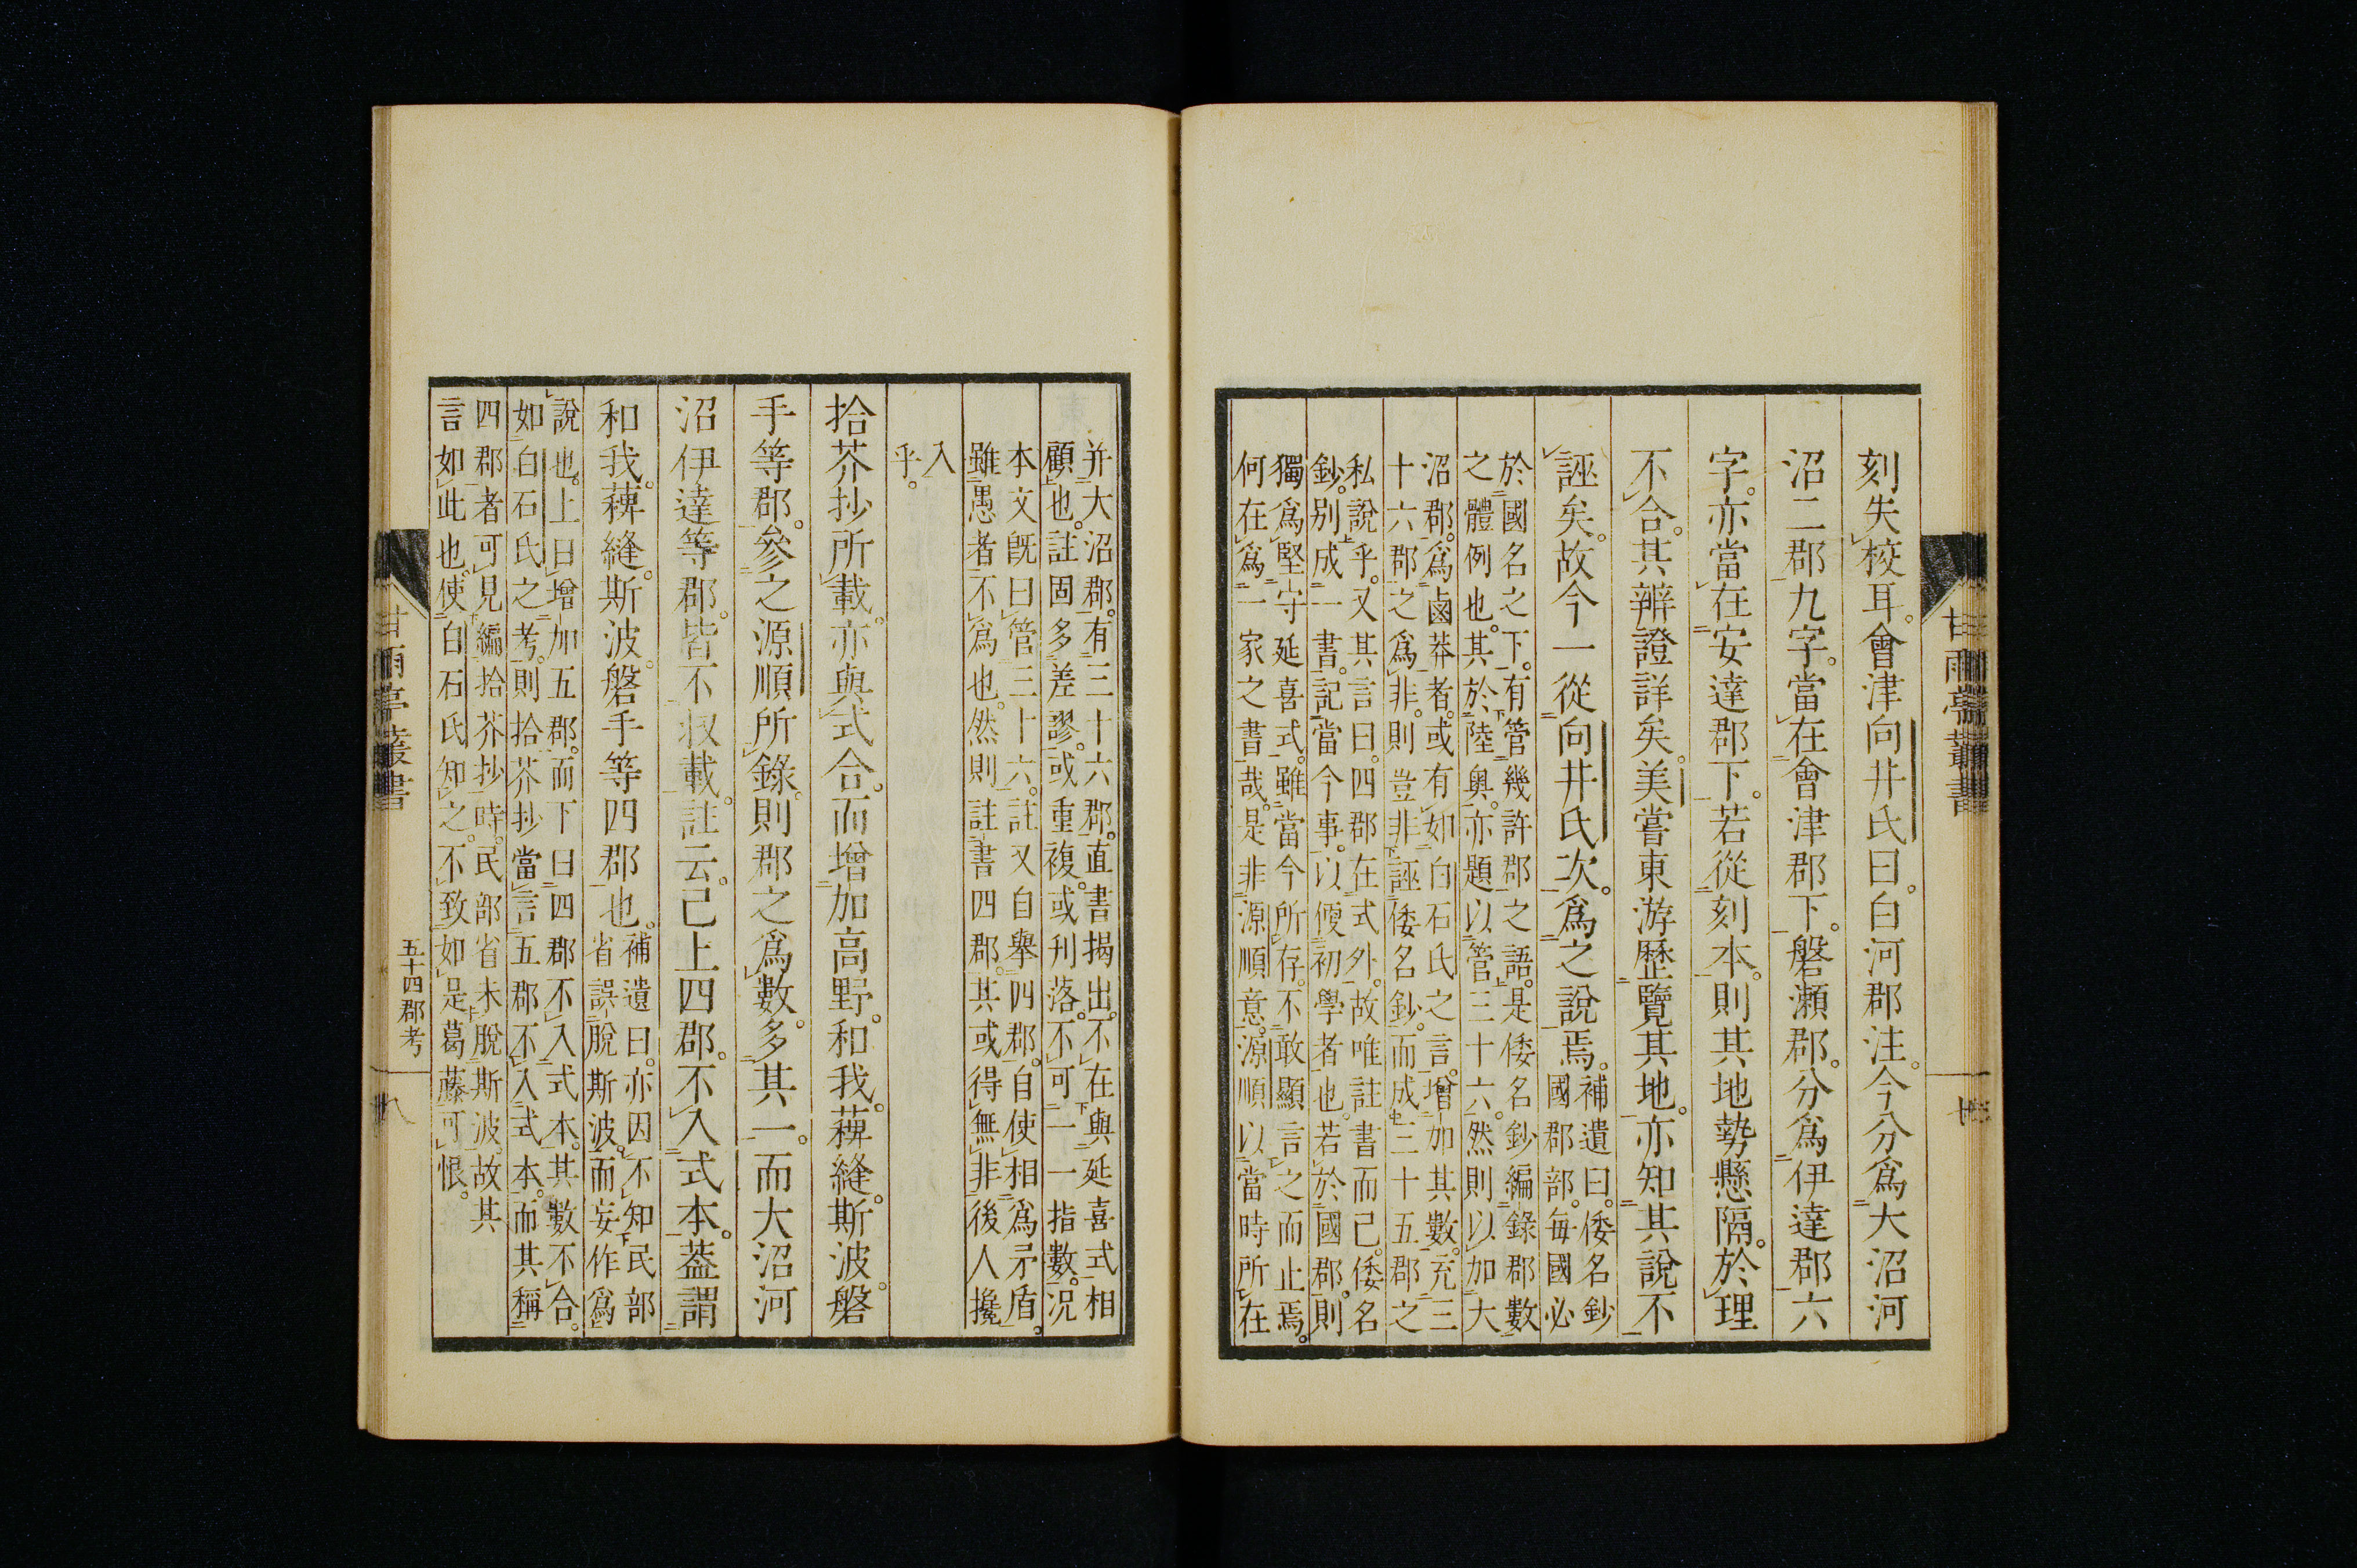 刻失校耳。會津向井氏曰。白河郡注。今分爲大沼河
沼二郡九字。當在會津郡下。磐瀬郡。分爲伊達郡六
字。亦當在安達郡下。若從刻本。則其地勢懸隔。於理
不合。其辨證詳矣。美嘗東游歷覽其地。亦知其說不
誣矣。故今一從向井氏次。爲之說焉。
補遺曰。倭名鈔
國郡部。毎國必
於國名之下。有管幾許郡之語。是倭名鈔編錄郡數
之體例也。其於陸奥。亦題以管三十六。然則以加大
沼郡。爲鹵莽者。或有如白石氏之言。增加其數。充三
十六郡之爲非。則豈非誣倭名鈔。而成三十五郡之
私說乎。又其言曰。四郡在式外。故唯註書而已。倭名
鈔。別成一書。記當今事。以便初學者也。若於國郡。則
獨爲堅守延喜式。雖當今所存。不敢顯言之而止焉。
何在爲一家之書哉。是非源順意。源順以當時所在
甘雨亭叢書
并大沼郡。有三十六郡。直書揭出。不在與延喜式相
顧也。註固多差謬。或重複。或刊落。不可一一指數。况
本文既曰管三十六。註又自擧四郡。自使相爲矛盾。
雖愚者不爲也。然則註書四郡。其或得無非後人攙
入
乎。
拾芥抄所載。亦與式合。而增加高野。和我。薭縫。斯波。磐
手等郡。參之源順所錄。則郡之爲數。多其一。而大沼河
沼伊達等郡。皆不收載。註云。已上四郡。不入式本。蓋謂
和我。薭縫。斯波。磐手等四郡也。
補遺曰。亦因不知民部
省誤脫斯波。而妄作爲
說也。上曰增加五郡。而下曰四郡不入式本。其數不合。
如白石氏之考。則拾芥抄當言五郡不入式本。而其稱
四郡者。可見編拾芥抄時。民部省未脫斯波。故其
言如此也。使白石氏知之。不致如是葛藤。可恨。
甘雨亭叢書
五十四郡考
八